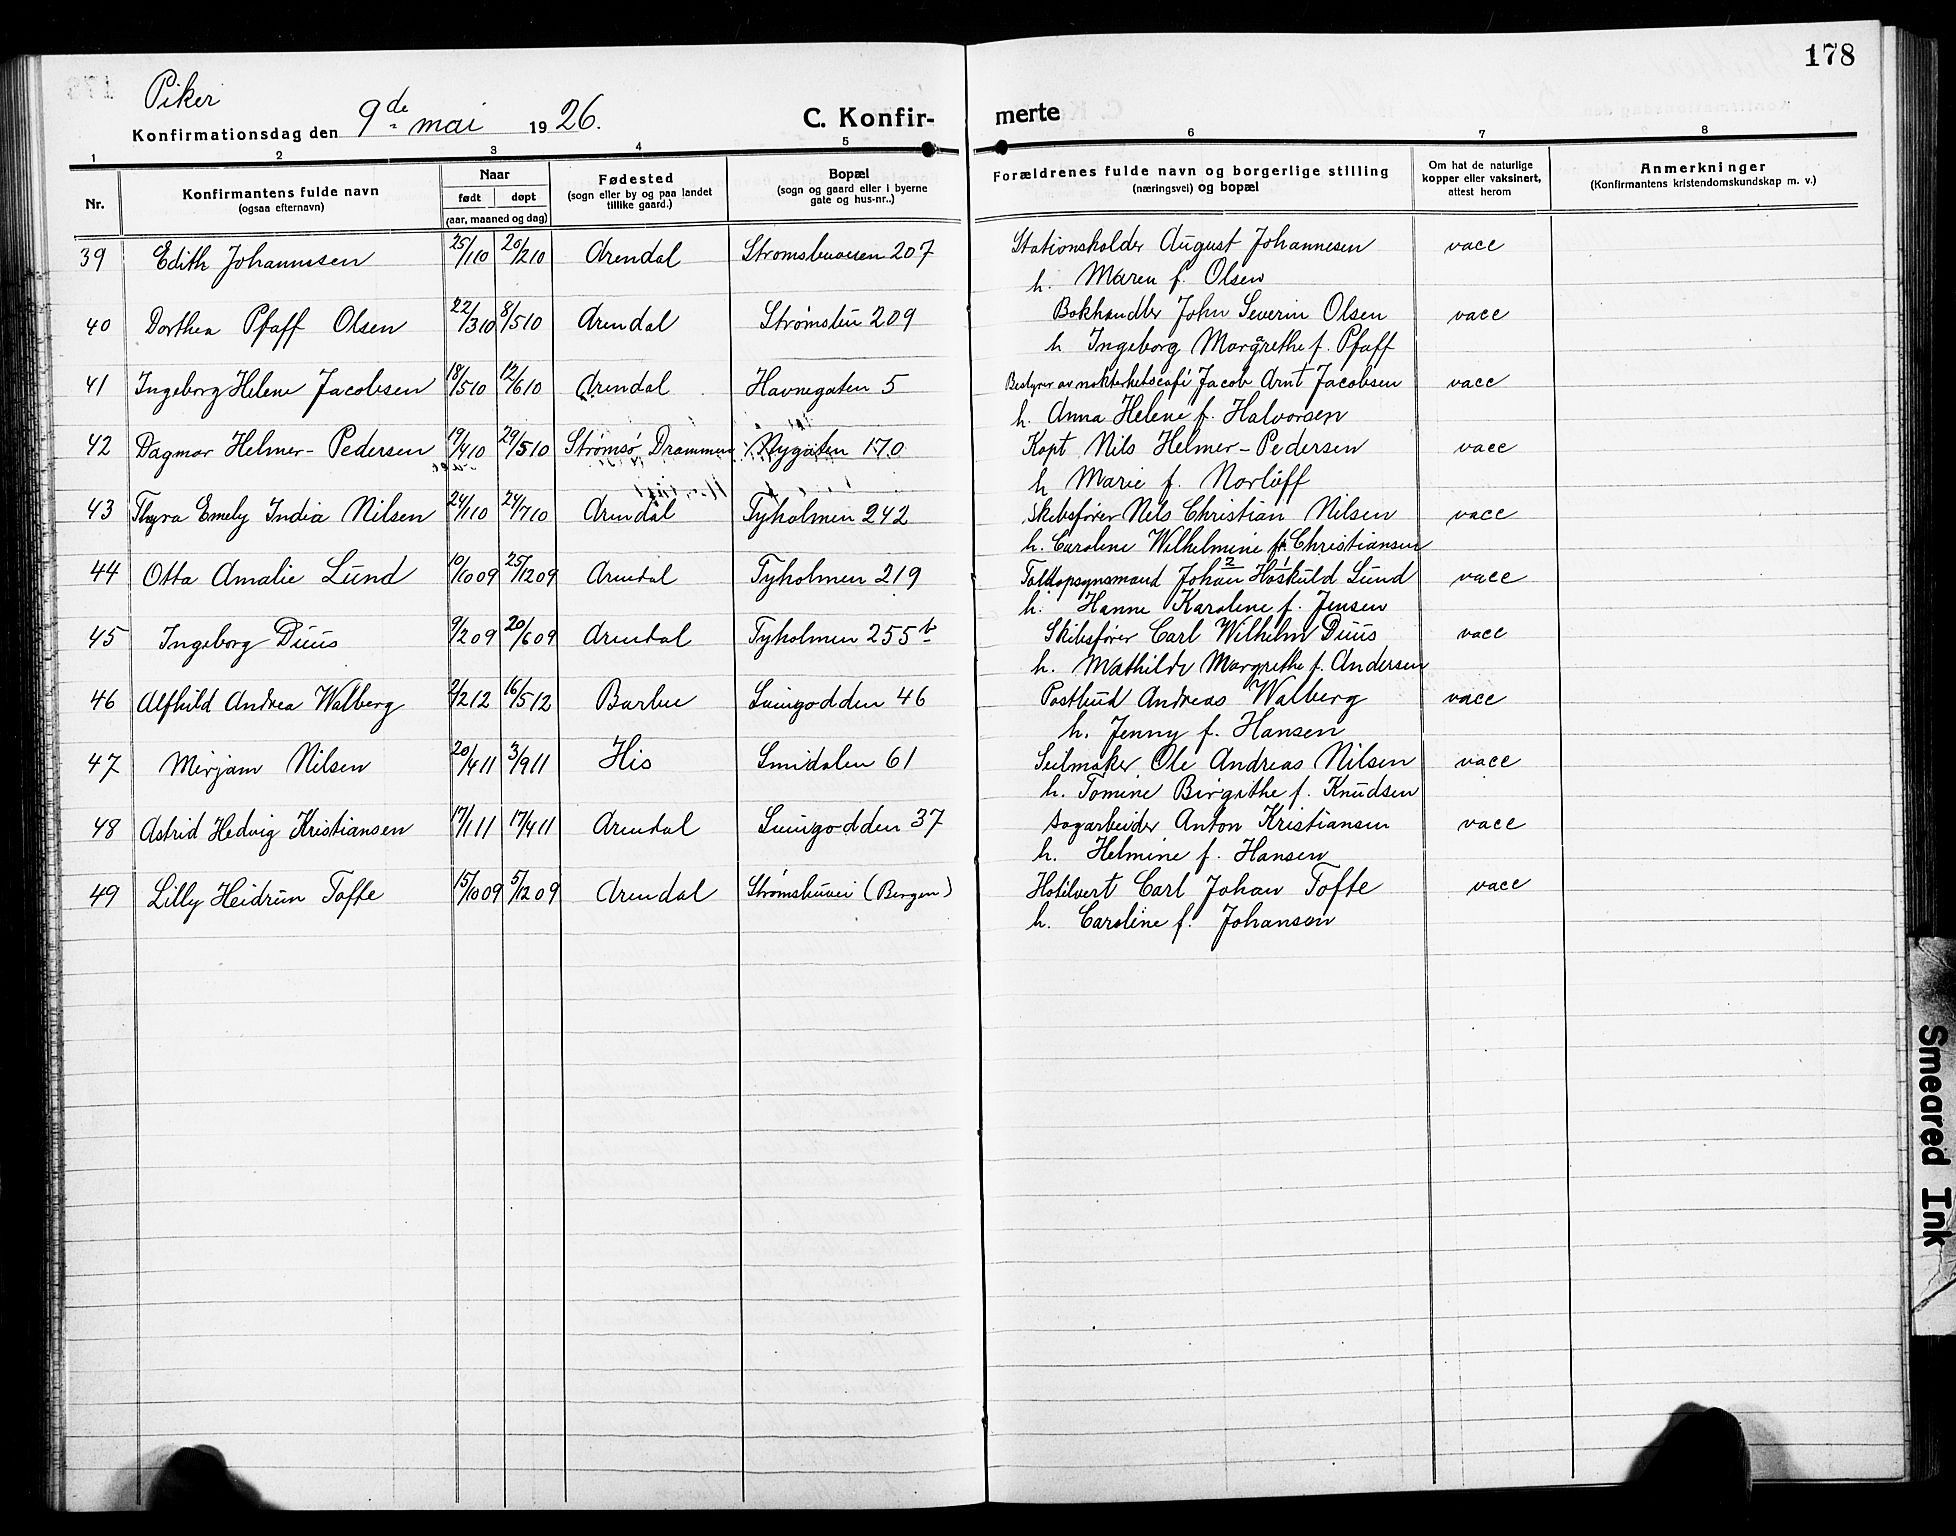 178
Piker
Konfirmationsdag den 9de mai 1926.
C. Konfir-
merte
1 2 3 4 5 6 7 8
Nr.
Konfirmantens fulde navn
(ogsaa efternavn)
Naar
født døpt
(aar, maaned og dag)
Fødested
(sogn eller by og paa landet
tillike gaard.)
Bopæl
(sogn og gaard eller i byerne
gate og hus-nr..)
Forældrenes fulde navn og borgerlige stilling
(næringsvei) og bopæl
Om hat de naturlige
kopper eller vaksinert,
attest herom
Anmerkninger
(Konfirmantens kristendomskundskap m. v.)
39 Edith Johannessen 25/1 10 20/2 10 Arendal 207 Stationsholder August Johannesen vacc
h. Maren f. Olsen
40 Dorthea Pfaff Olsen 22/3 10 8/5 10 Arendal Strømsbu 209 Bokhandler John Severin Olsen vacc
h Ingeborg Margrethe f. Pfaff
41 Ingeborg Helene Jacobsen 18/5 10 12/6 10 Arendal Havnegaten 5 Bestyrer av Jacob Arnt Jacobsen vacc
h. Anna Helene f. Halvorsen
42 Dagmar Helmer-Pedersen 19/4 10 29/5 10 Strømsø, Drammen Nygaten 170 Kapt Nils Helmer-Pedersen vacc
h Marie f. Norløff
43 Thyra Emely India Nilsen 24/1 10 24/7 10 Arendal Tyholmen 242 Skibsfører Nils Christian Nilsen vacc
h. Caroline Wilhelmine f. Christiansen
44 Otta Amalie Lund 10/10 09 25/12 09 Arendal Tyholmen 219 Toldopsynsmand Johan Høskuld Lund vacc
h. Hanne Karoline f. Jensen
45 Ingeborg Duus 9/2 09 20/6 09 Arendal Tyholmen 255 b Skibsfører Carl Wilhelm Duus vacc
h. Mathilde Margrethe f. Andersen
46 Alfhild Andrea Walberg 2/2 12 16/5 12 Barbu Suingodden 46 Postbud Andreas Walberg vacc
h. Jenny f. Hansen
47 Mirjam Nilsen 20/4 11 3/9 11 His Smidalen 61 Seilmaker Ole Andreas Nilsen vacc
h. Tomine Birgithe f. Knudsen
48 Astrid Hedvig Kristiansen 17/1 11 17/4 11 Arendal Suingodden 37 Sagarbeider Anton Kristiansen vacc
h. Helmine f. Hansen
49 Lilly Heidrun Tofte 15/10 09 5/12 09 Arendal Strømsbuvei (Bergen) Hotilvert Carl Johan Tofte vacc
h. Caroline f. Johansen
Smeared Ink